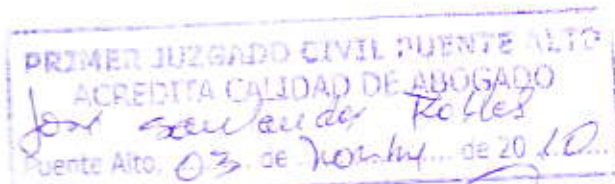 PRIMER JUZGADO CIVIL PUENTE ALTO
ACREDITA CALIDAD DE ABOGADO
José Robles
Puente Alto, 03 de de 2010